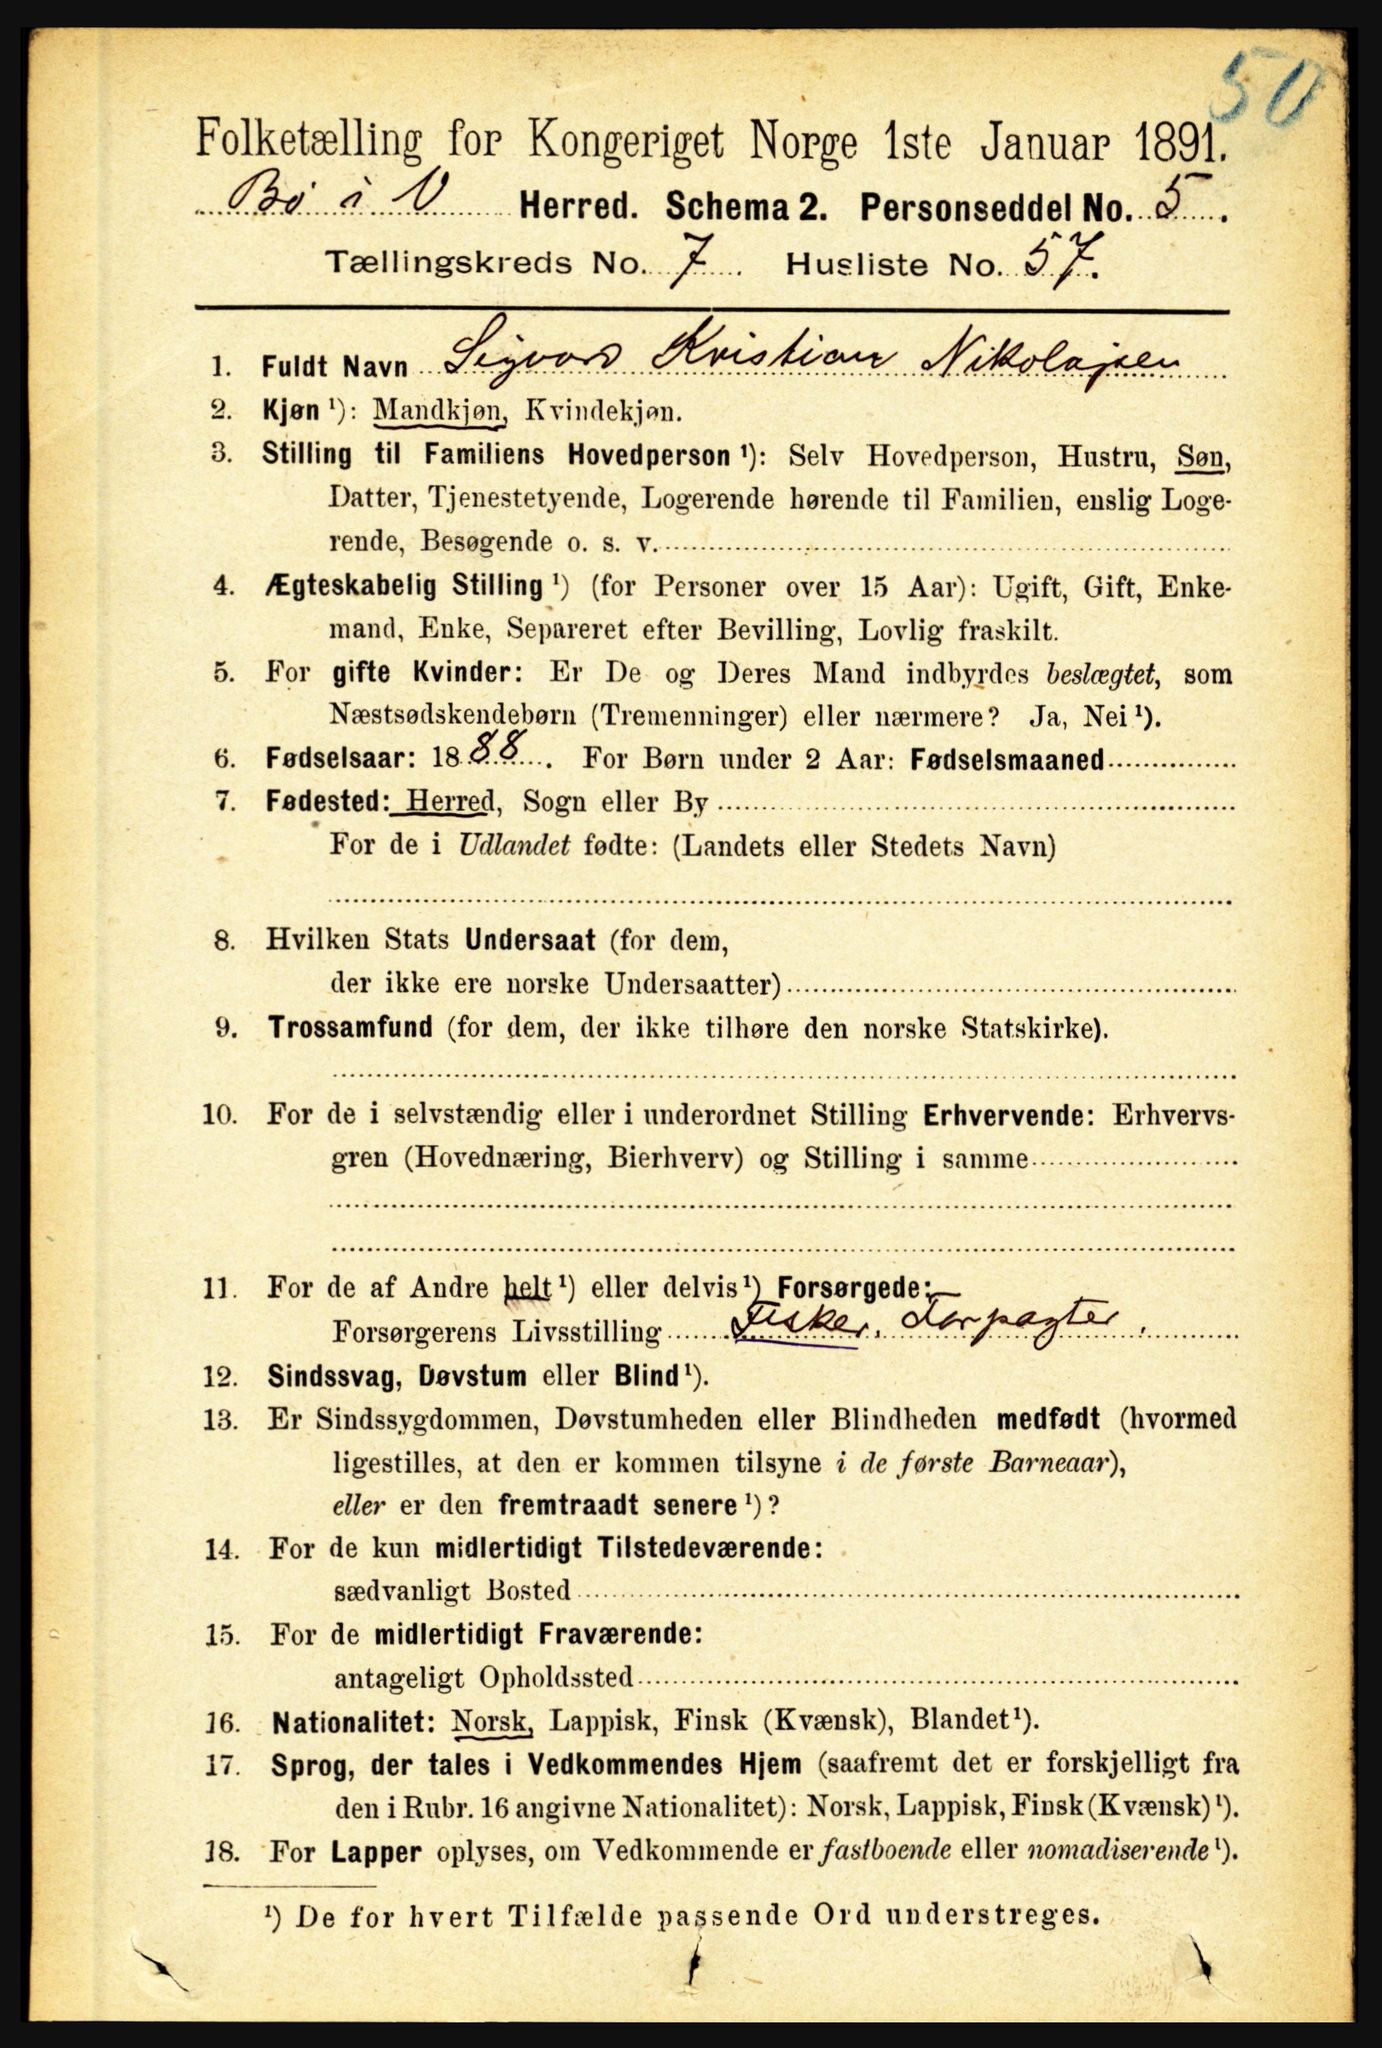 50
Folketælling for Kongeriget Norge 1ste Januar 1891.
Bø i V Herred. Schema 2. Personseddel No. 5.
Tællingskreds No. 7. Husliste No. 57.
1. Fuldt Navn Sigvard Kristian Nikolajsen
2. Kjøn ¹): Mandkjøn, Kvindekjøn.
3. Stilling til Familiens Hovedperson ¹): Selv Hovedperson, Hustru, Søn,
Datter, Tjenestetyende, Logerende hørende til Familien, enslig Loge-
rende, Besøgende o. s. v.
4. Ægteskabelig Stilling ¹) (for Personer over 15 Aar): Ugift, Gift, Enke-
mand, Enke, Separeret efter Bevilling, Lovlig fraskilt.
5. For gifte Kvinder: Er De og Deres Mand indbyrdes beslægtet, som
Næstsødskendebørn (Tremenninger) eller nærmere? Ja, Nei ¹).
6. Fødselsaar: 1888. For Børn under 2 Aar: Fødselsmaaned
7. Fødested: Herred, Sogn eller By
For de i Udlandet fødte: (Landets eller Stedets Navn)
8. Hvilken Stats Undersaat (for dem,
der ikke ere norske Undersaatter)
9. Trossamfund (for dem, der ikke tilhøre den norske Statskirke).
10. For de i selvstændig eller i underordnet Stilling Erhvervende: Erhvervs-
gren (Hovednæring, Bierhverv) og Stilling i samme
11. For de af Andre helt ¹) eller delvis ¹) Forsørgede:
Forsørgerens Livsstilling Fisker, Jorpagter,
12. Sindssvag, Døvstum eller Blind ¹).
13. Er Sindssygdommen, Døvstumheden eller Blindheden medfødt (hvormed
ligestilles, at den er kommen tilsyne i de første Barneaar),
eller er den fremtraadt senere ¹)?
14. For de kun midlertidigt Tilstedeværende:
sædvanligt Bosted
15. For de midlertidigt Fraværende:
antageligt Opholdssted
16. Nationalitet: Norsk, Lappisk, Finsk (Kvænsk), Blandet ¹).
17. Sprog, der tales i Vedkommendes Hjem (saafremt det er forskjelligt fra
den i Rubr. 16 angivne Nationalitet): Norsk, Lappisk, Finsk (Kvænsk) ¹).
18. For Lapper oplyses, om Vedkommende er fastboende eller nomadiserende ¹).
¹) De for hvert Tilfælde passende Ord understreges.